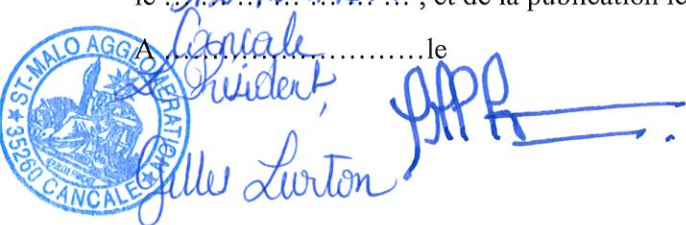 le ........................ , et de la publication le
A Cancale le
Le Président,
Gilles Lurton
ST-MALO AGGLOMERATION
35260 CANCALE